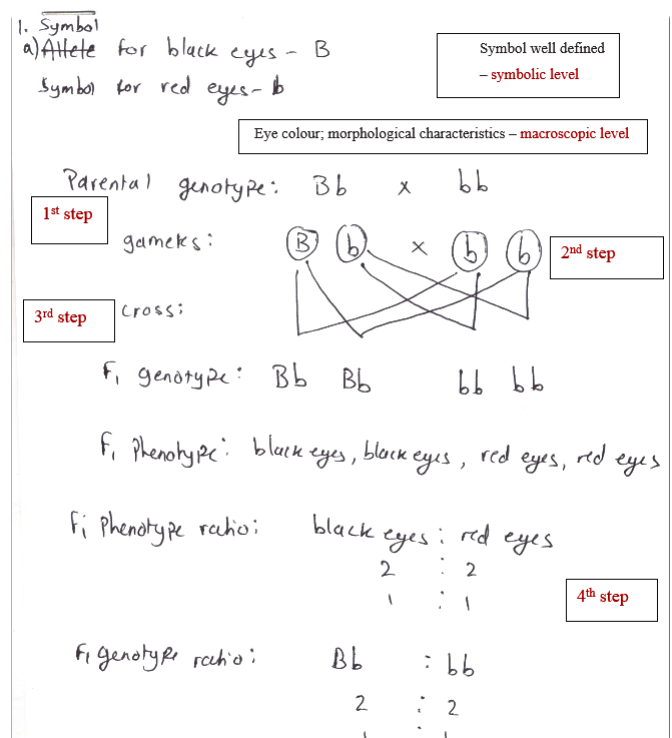 1. Symbol
a) Allele for black eyes - B
Symbol for red eyes - b
Symbol well defined
– symbolic level
Eye colour; morphological characteristics – macroscopic level
Parental genotype: Bb x bb
1st step
gametes: B b x b b
2nd step
3rd step
cross:
F1 genotype: Bb Bb bb bb
F1 Phenotype: black eyes, black eyes, red eyes, red eyes
F1 Phenotype ratio: black eyes : red eyes
2 : 2
1 : 1
4th step
F1 genotype ratio: Bb : bb
2 : 2